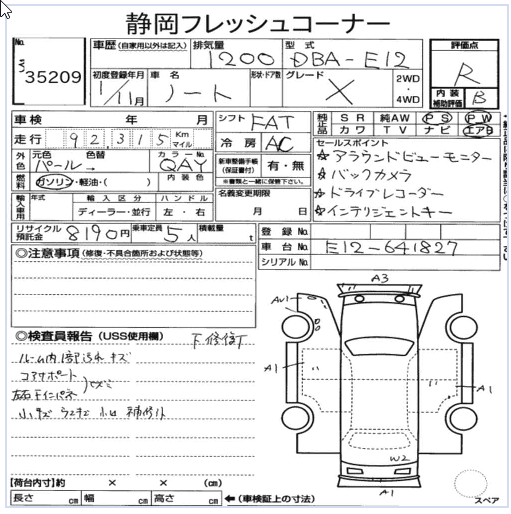 静岡フレッシュコーナー
No. 35209
車歴(自家用以外は記入)
排気量 1200
型式 DBA-E12
評価点 R
初度登録年月 1/11月
車名 ノート
形状・ドア数
グレード X
2WD・4WD
内装補助評価 B
車検 年 月
シフト FAT
純正品 SR 純AW PS PW
カワ TV ナビ エアB
走行 92,315 Km マイル
冷房 AC
セールスポイント
☆アラウンドビューモニター
☆バックカメラ
☆ドライブレコーダー
☆インテリジェントキー
外色 元色 色替 パール
カラーNo. QAY
新車整備手帳(保証書付) 有・無
※書類と一緒に保管下さい。
燃料 ガソリン・軽油・( )
内装色
名義変更期限 月 日
輸入車用 年式 輸入区分 ハンドル
ディーラー・並行 左・右
リサイクル預託金 8190円
乗車定員 5人
積載量 t
登録No.
車台No. E12-641827
シリアルNo.
◎注意事項(修復・不具合箇所および状態等)
◎検査員報告(USS使用欄)
ルーム内1部汚れ キズ
コアサポート
左右
A3
AU1
A1
A1
W2
A1
スペア
【荷台内寸】約 × × (cm)
長さ cm 幅 cm 高さ cm ←(車検証上の寸法)